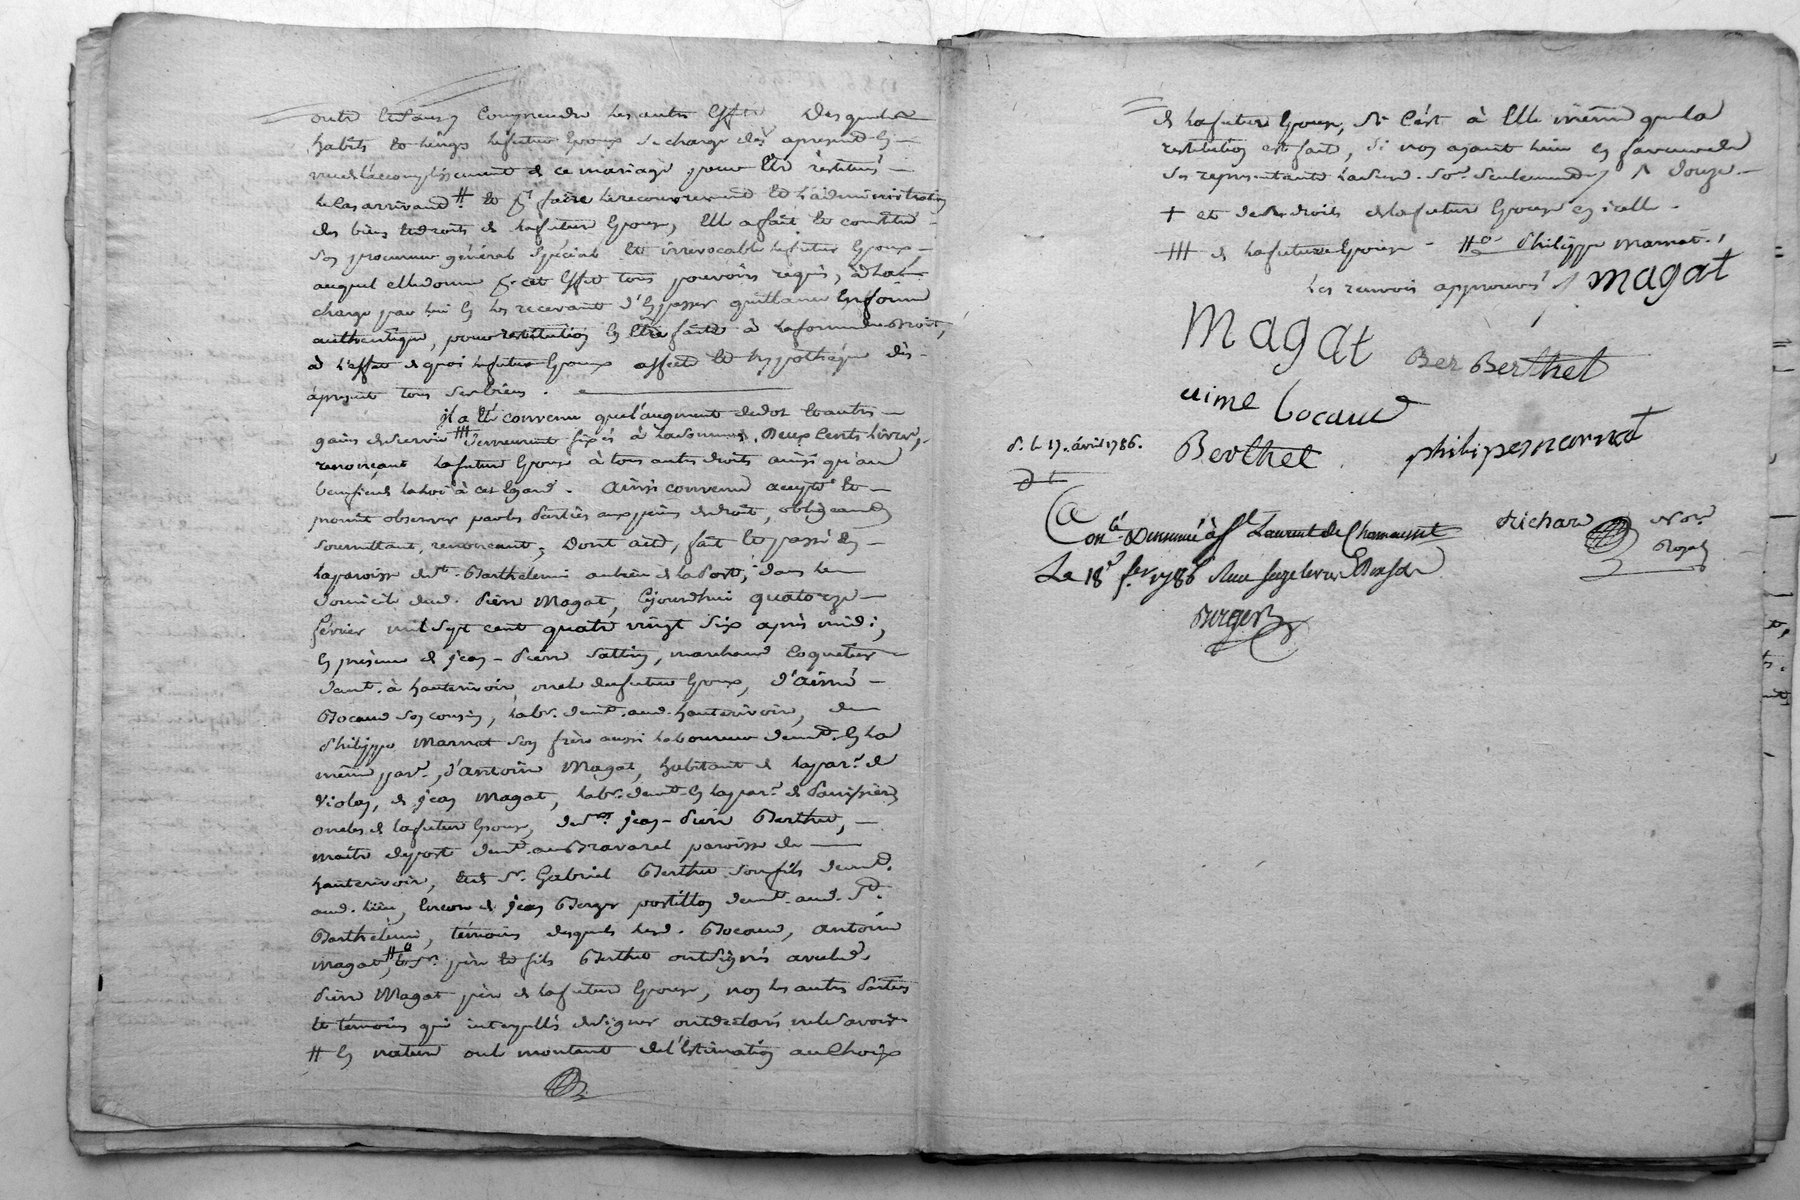 outre ce sans y comprendre les autres effets desquels
habits et linges le futur epoux se charge dès apresent en
vue de l'accomplissement de ce mariage pour être restitués
le cas arrivant # et pr. faire le recouvrement et l'administration
des biens et droits de la future Epouse, Elle a fait et constitué
son procureur général spécial et irrevocable le futur Epoux
auquel elle donne pr. cet effet tous pouvoirs requis, à la
charge par lui en les recevant d'en passer quittance en forme
authentique, pour restitution en être faite à la forme du droit,
à l'effet de quoi le futur Epoux affecte et hypothéque dès
àpresent tous ses biens.
il a été convenu que l'augment de dot et autres
gains de survie # demeurent fixés à la somme de Deux cents livres,
renonçant la future Epouse à tous autres droits ainsi qu'au
benefice de la loi à cet égard. Ainsi convenu accepté et
promit observer par les Parties aux peines de droit, obligeant
soumettant, renonçant. Dont acte, fait et passé en
la paroisse de St. Barthelemi au lieu de la Poste, dans le
domicile dud. Pierre Magat, cejourdhui quatorze
fevrier mil sept cent quatre vingt six après midi,
en présence de jean-Pierre Sattin, marchand coquetier
demt. à hauterivoire oncle du futur Epoux, d'aimé
Bocaud son cousin, labr. demt. aud. hauterivoire, de
Philippe Marnat son frère aussi laboureur demt. en la
même par. d'antoine Magat, habitant de la par. de
Violay, de jean Magat, labr. demt. en la par. de Panissière
oncles de la future Epouse, de sr. jean-Pierre Berthet,
maitre de poste demt. au Bravaret paroisse de
hauterivoire, et de Sr. Gabriel Berthet son fils demt.
aud. lieu, encore de jean Berger postillon demt. aud. St.
Barthélemi, témoins desquels led. Bocaud, antoine
Magat, # les srs. père et fils Berthet ont signés avec led.
Pierre Magat père de la future Epouse, non les autres Parties
et témoins qui interpellés de signer ont déclaré ne le savoir.
# en nature ou le montant de l'Estimation au choix
de la future Epouse, si c'est à Elle même que la
restitution est faite, si non ayant lieu en faveur de
ses representants lad. so. seulement
+ et de ses droits de la future Epouse en icelle.
# de la future Epouse - #o Philippe Marnat.
Les renvois approuvés magat
Magat Ber Berthet
aimé bocaud
Berthet philipe marnat
d. le 17. avril 1786.
Conlé. & Insinué à St Laurent de Chamousset Richard Nore.
Royal
Le 18e fer. 1786 Reçu seize livres
Burger